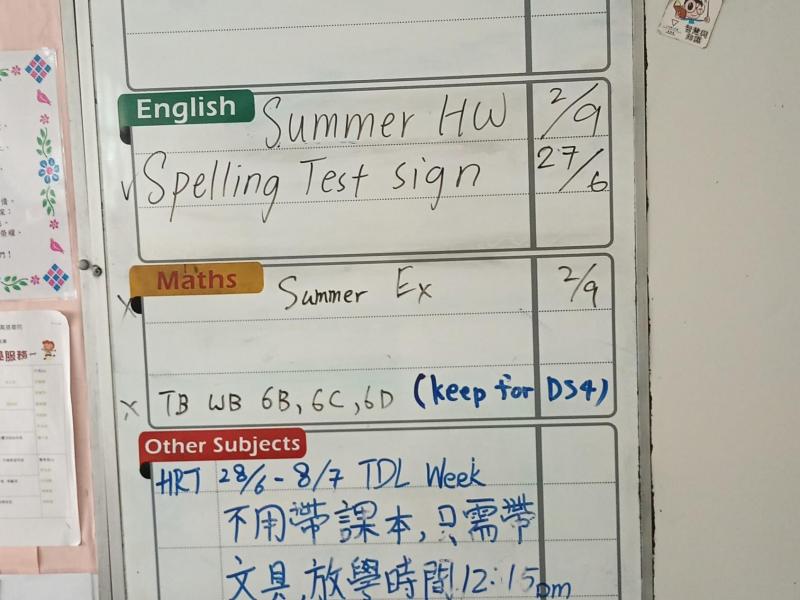 智慧與
知識
English
Summer HW 2/9
✓ Spelling Test sign 27/6
Maths
Summer Ex 2/9
x TB WB 6B, 6C, 6D (keep for DS4)
Other Subjects
HRT 28/6 - 8/7 TDL Week
不用帶課本,只需帶
文具,放學時間12:15pm